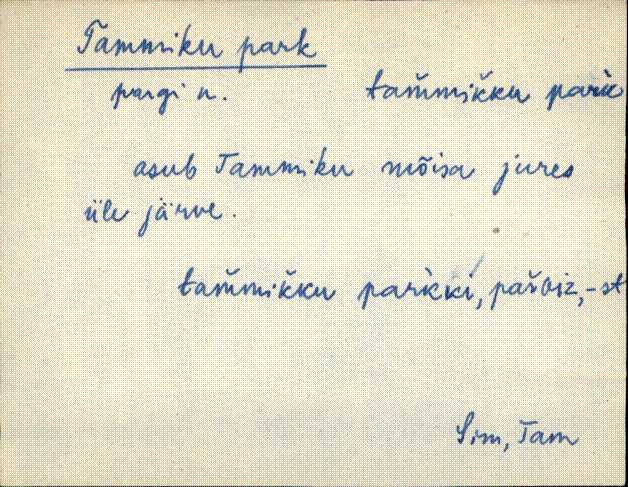 Tammiku park
pargi n. tam̆mik̆ku park̀
asub Tammiku mõisa jures
üle järve.
tam̆mik̆ku par̀kki, -st
Sim, Tam